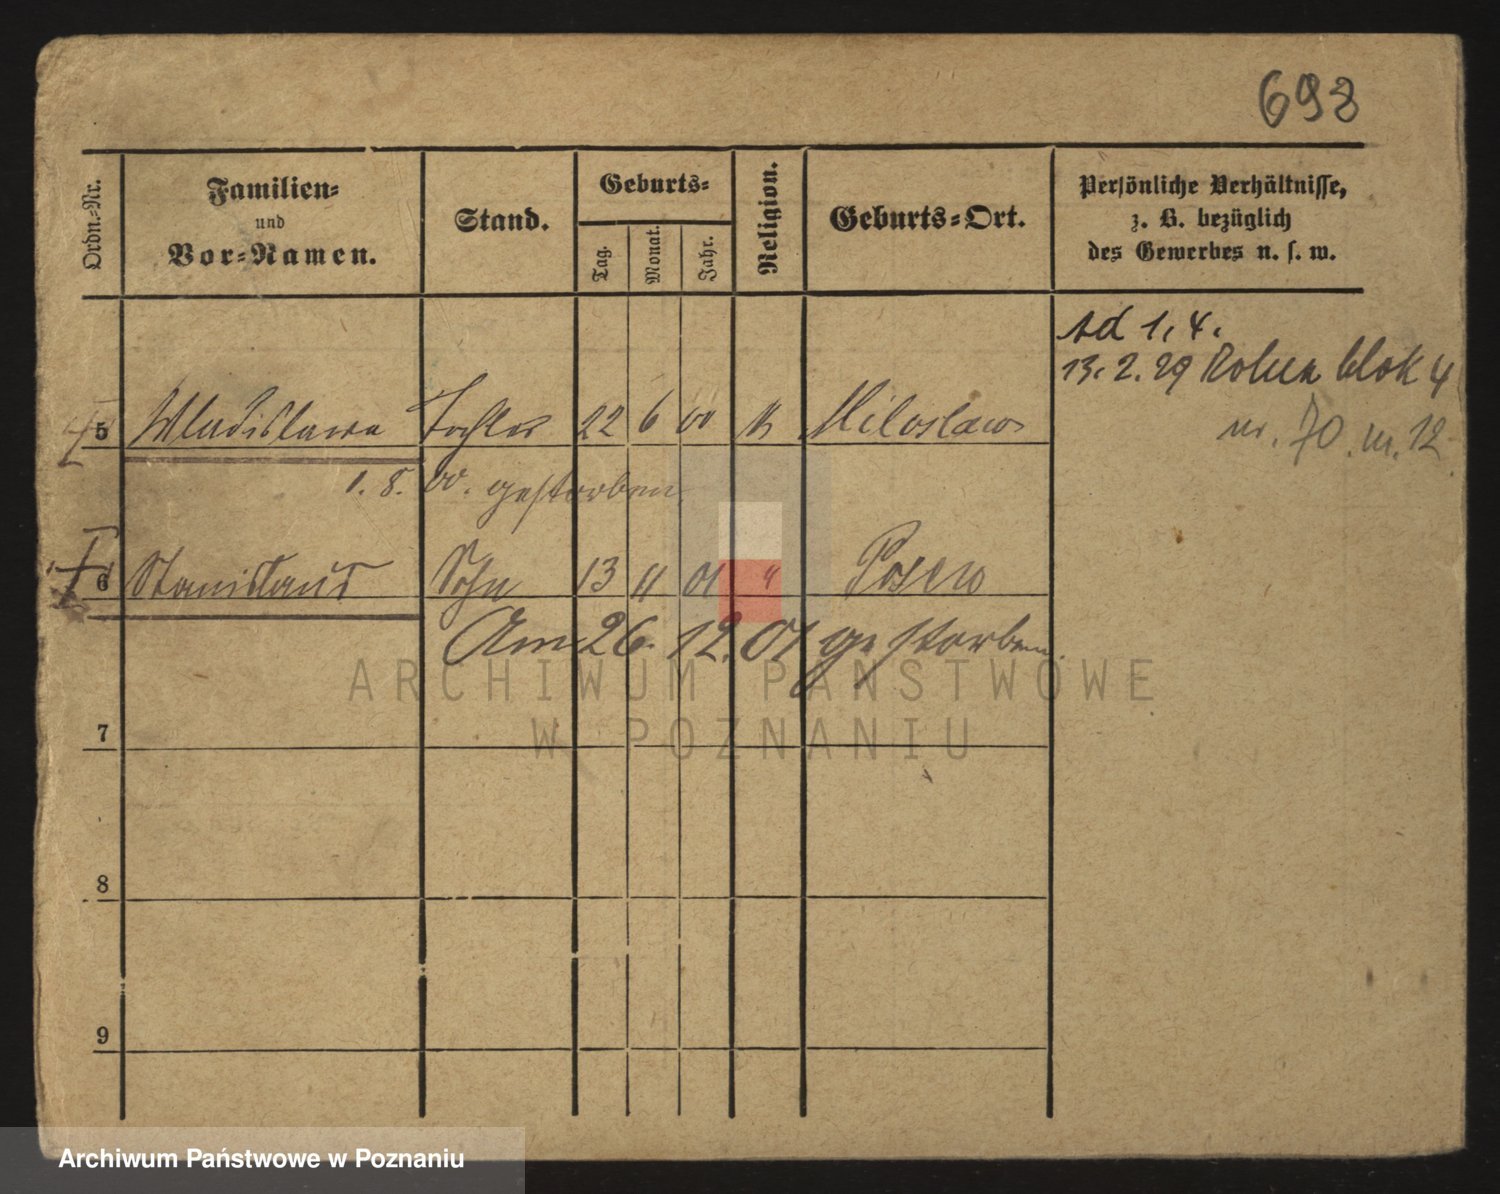 698
Ordn.-Nr.
Familien-
und
Vor-Namen.
Stand.
Geburts-
Tag.
Monat.
Jahr.
Religion.
Geburts-Ort.
Persönliche Verhältnisse,
z. B. bezüglich
des Gewerbes u. s. w.
Ad 1, 4.
13. 2. 29 Rolna blok 4
nr. 70 m. 12
5 Wladislawa Tochter 22 6 00 k Miloslaw
1. 8. 00. gestorben.
6 Stanislaus Sohn 13 11 01 " Posen
Am 26. 12. 01 gestorben.
ARCHIWUM PAŃSTWOWE
W POZNANIU
7
8
9
Archiwum Państwowe w Poznaniu